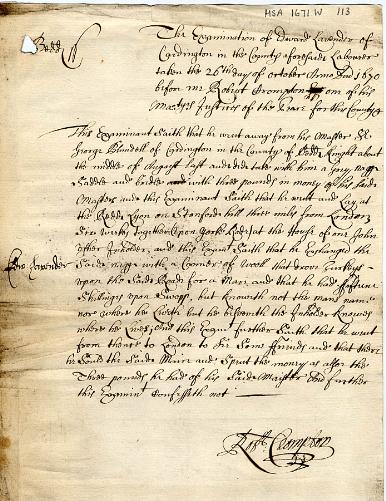 HSA 1671 W 113
Bedd ss
The Examination of Edward Lavender of
Cardington in the County aforesaid Labourer
taken the 26th day of October Anno Dni 1670
before mr Robert Crompton one of his
Maties Justices of the Peace for this County
This Examinant Saith that he went away from his Master Sr
George Blundell of Cardington in the County of Bedd Knight about
the middle of August last and did take with him a Grey nagg
Saddle and bridle with three pounds in money of his said
Masters and this Examinant Saith that he went and Lay at
the Redd Lyon on Stanford hill three miles from London
Six weekes together upon at the House of one John
Inholder, and this Exant Saith that he Exchanged the
Said nagg with a of wooll that drove Turkeys
upon the Said Roade for a Mare and that he had fifteen
Shillings upon Swopp, but knoweth not the mans name
nor where he Liveth but he beleiveth the Inholder Knowes
where he Lives, And this Exant further Saith that he went
from thence to London to See Some ffriends and that there
he Sould the Said Mare and Spent the money as allsoe the
Three pounds he had of his Said Master And further
this Examint Confesseth not
Edw Lavender
Robt Crompton